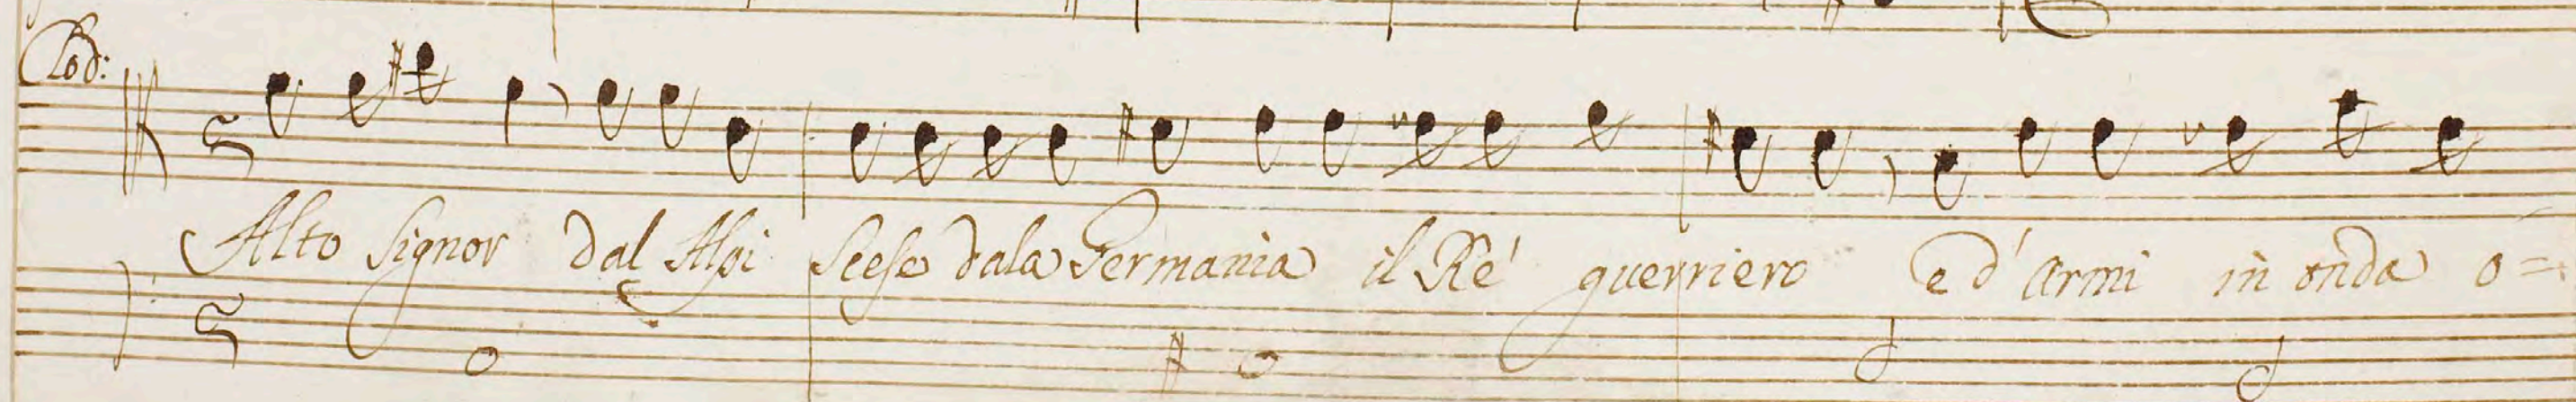 Lod:
Alto Signor dal Alpi Scese dala Germania il Re' guerriero e d'armi in onda o=